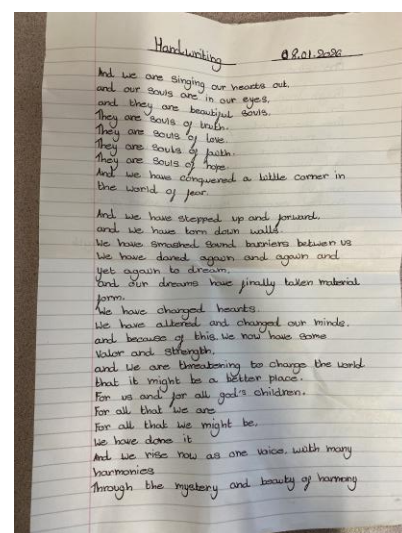 Handwriting 08.01.2026
And we are singing our hearts out,
and our souls are in our eyes,
and they are beautiful souls.
They are souls of truth.
They are souls of love.
They are souls of faith.
They are souls of hope.
And we have conquered a little corner in
the world of fear.
And we have stepped up and forward,
and we have torn down walls.
We have smashed sound barriers between us
We have dared again and again and
yet again to dream.
and our dreams have finally taken material
form.
We have changed hearts.
We have altered and changed our minds.
and because of this. We now have some
valor and strength,
and we are threatening to change the world
that it might be a better place.
For us and for all god's children.
For all that we are
For all that we might be.
We have done it
And we rise now as one voice, with many
harmonies
Through the mystery and beauty of harmony